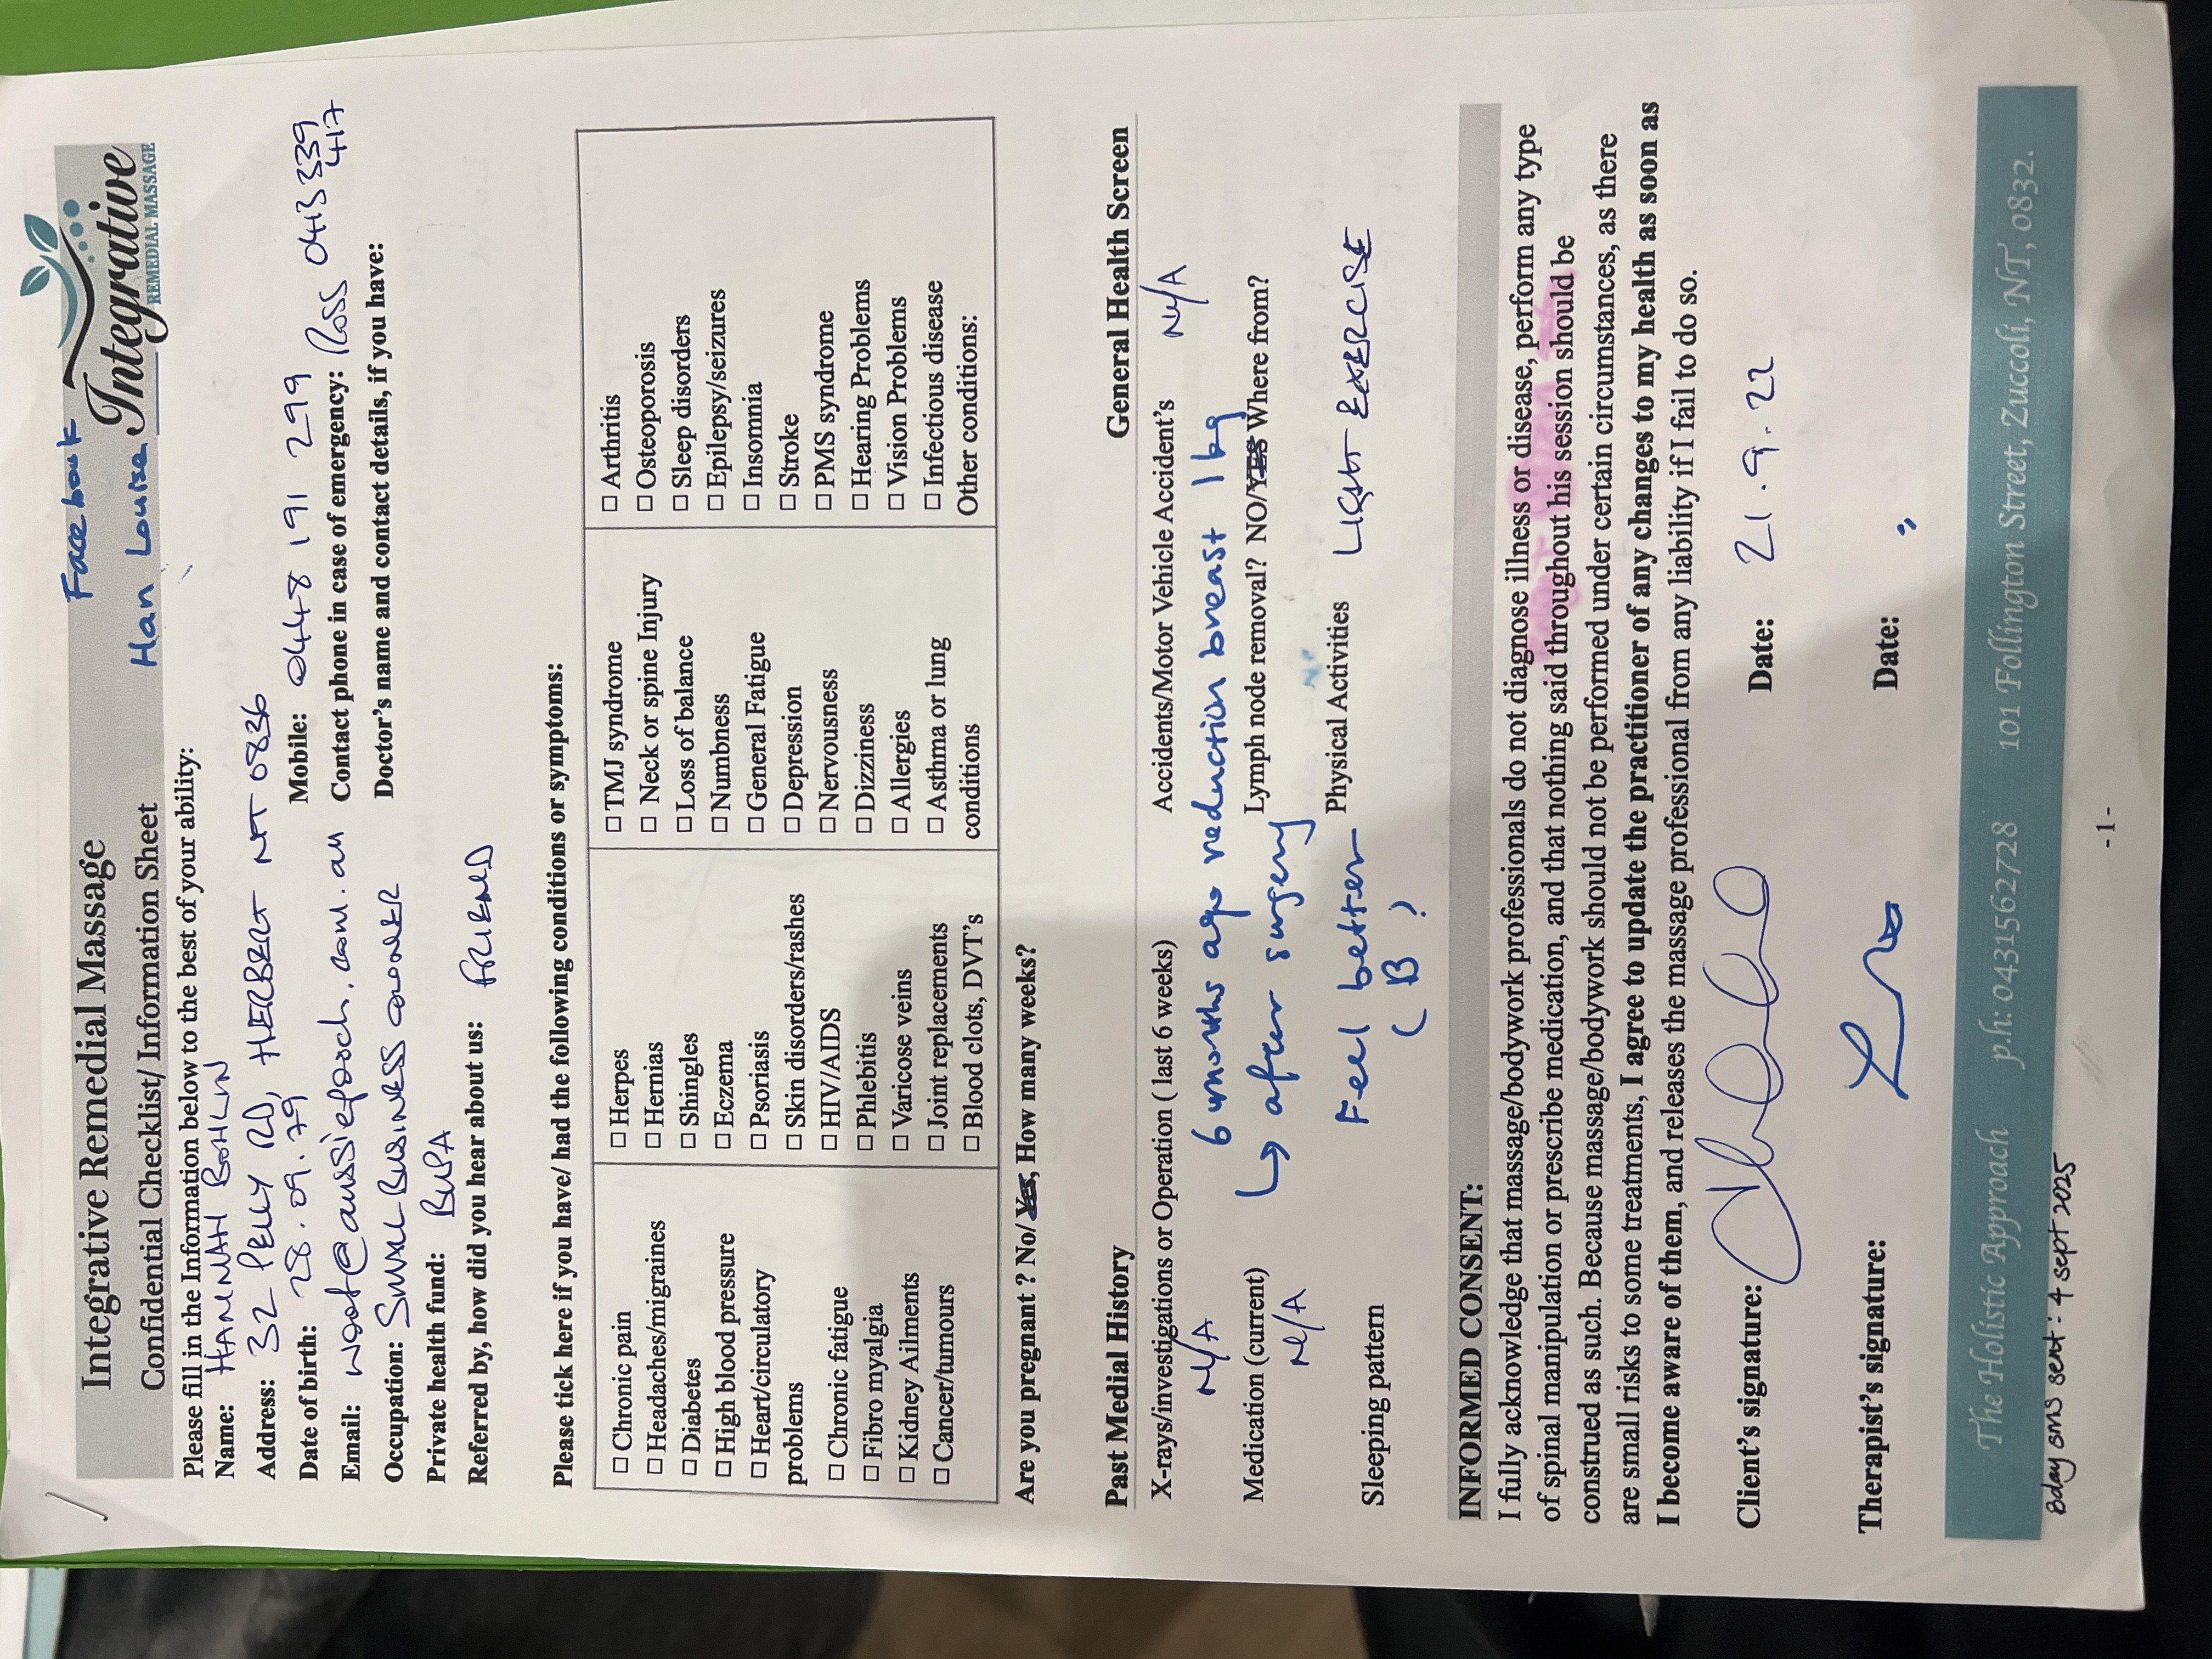 Integrative Remedial Massage
Confidential Checklist/ Information Sheet
Facebook
Han Louisa
Integrative
REMEDIAL MASSAGE
Please fill in the Information below to the best of your ability:
Name: HANNAH BOHLIN
Address: 32 PELLY RD, HERBERT NT 0836
Date of birth: 28.09.79 Mobile: 0448 191 299
Email: woof@aussiepooch.com.au Contact phone in case of emergency: ROSS 0413 339 417
Occupation: SMALL BUSINESS OWNER Doctor's name and contact details, if you have:
Private health fund: BUPA
Referred by, how did you hear about us: FRIEND
Please tick here if you have/ had the following conditions or symptoms:
☐ Chronic pain
☐ Headaches/migraines
☐ Diabetes
☐ High blood pressure
☐ Heart/circulatory
problems
☐ Chronic fatigue
☐ Fibro myalgia
☐ Kidney Ailments
☐ Cancer/tumours
☐ Herpes
☐ Hernias
☐ Shingles
☐ Eczema
☐ Psoriasis
☐ Skin disorders/rashes
☐ HIV/AIDS
☐ Phlebitis
☐ Varicose veins
☐ Joint replacements
☐ Blood clots, DVT's
☐ TMJ syndrome
☐ Neck or spine Injury
☐ Loss of balance
☐ Numbness
☐ General Fatigue
☐ Depression
☐ Nervousness
☐ Dizziness
☐ Allergies
☐ Asthma or lung
conditions
☐ Arthritis
☐ Osteoporosis
☐ Sleep disorders
☐ Epilepsy/seizures
☐ Insommia
☐ Stroke
☐ PMS syndrome
☐ Hearing Problems
☐ Vision Problems
☐ Infectious disease
Other conditions:
Are you pregnant ? No/ Yes, How many weeks?
Past Medial History General Health Screen
X-rays/investigations or Operation ( last 6 weeks) Accidents/Motor Vehicle Accident's N/A
N/A 6 months ago reduction breast 1kg
Medication (current) ↳ after surgery Lymph node removal? NO/YES Where from?
N/A
Feel better Physical Activities LIGHT EXERCISE
Sleeping pattern (B)
INFORMED CONSENT:
I fully acknowledge that massage/bodywork professionals do not diagnose illness or disease, perform any type
of spinal manipulation or prescribe medication, and that nothing said throughout his session should be
construed as such. Because massage/bodywork should not be performed under certain circumstances, as there
are small risks to some treatments, I agree to update the practitioner of any changes to my health as soon as
I become aware of them, and releases the massage professional from any liability if I fail to do so.
Client's signature: Date: 21.9.22
Therapist's signature: Date: "
The Holistic Approach p.h: 0431562728 101 Follington Street, Zuccoli, NT, 0832.
Bday sms sent: 4 sept 2025
- 1 -